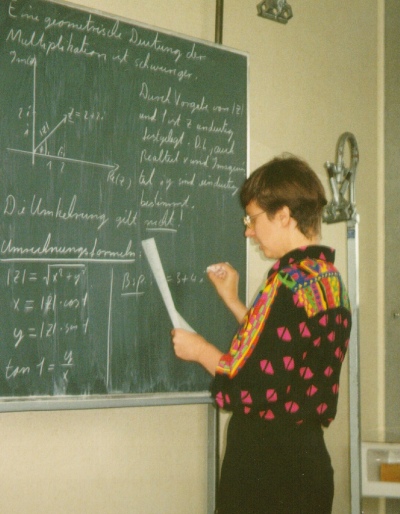 Eine geometrische Deutung der
Multiplikation ist schwieriger.
Im(z)
z = 2+2i
2i
i
|z|
1 2
Re(z)
Durch Vorgabe von |z|
und φ ist z eindeutig
festgelegt. D.h. auch
Realteil x und Imaginär-
teil y sind eindeutig
bestimmt.
Die Umkehrung gilt nicht!
Umrechnungsformeln:
|z| = √x²+y²
x = |z|·cos φ
y = |z|·sin φ
tan φ = y/x
Bsp.: = 3+4